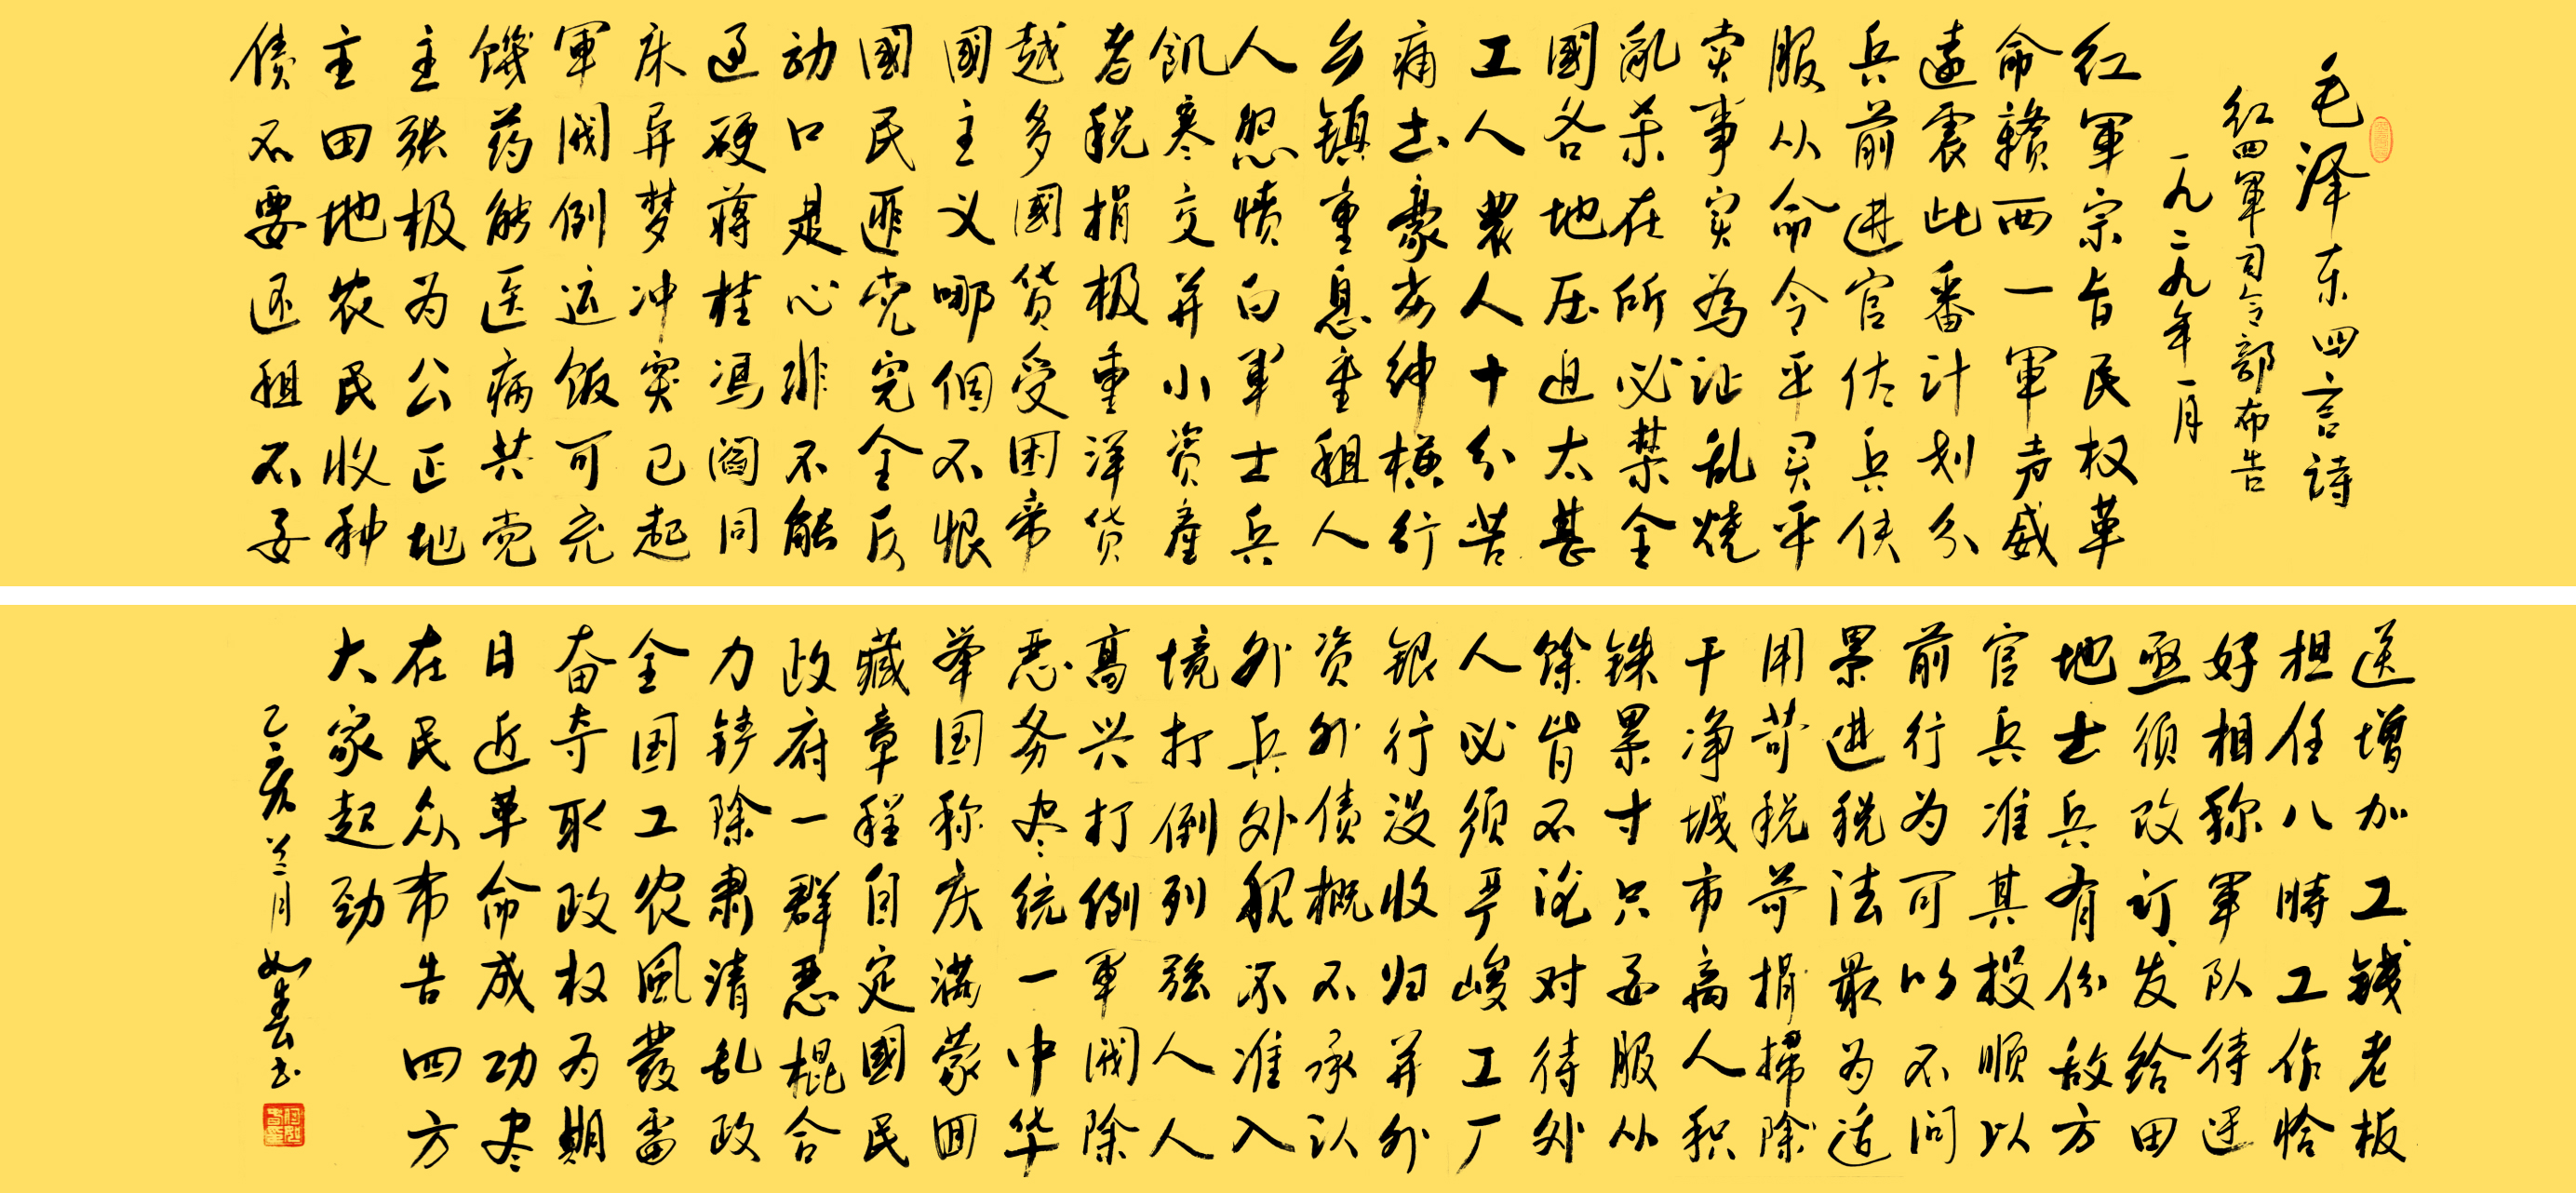 毛泽东四言詩
红四軍司令部布告
一九二九年一月
红軍宗旨民权革
命赣西一軍声威
遠震此番计划分
兵前进官佐兵伕
服从命令平买平
卖事实為证乱燒
亂杀在所必禁全
國各地压迫太甚
工人農人十分苦
痛土豪劣绅横行
乡镇重息重租人
人怨愤白軍士兵
飢寒交并小资產
者税捐极重洋货
越多國货受困帝
國主义哪個不恨
國民匪党完全反
动口是心非不能
过硬蒋桂冯阎同
床异梦冲突已起
軍阀倒运饭可充
饑药能医病共党
主张极为公正地
主田地农民收种
债不要还租不要
送增加工钱老板
担任八時工作恰
好相称軍队待遇
亟须改订发给田
地士兵有份敌方
官兵准其投顺以
前行为可以不问
累进税法最为适
用苛税苛捐掃除
干净城市商人积
铢累寸只要服从
馀皆不论对待外
人必须严峻工厂
银行没收归并外
资外债概不承认
外兵外舰不准入
境打倒列强人人
高兴打倒軍阀除
恶务尽统一中华
举国称庆满蒙回
藏章程自定國民
政府一群恶棍合
力铲除肃清乱政
全国工农風發雷
奋夺取政权为期
日近革命成功尽
在民众布告四方
大家起劲
己亥兰月如春书